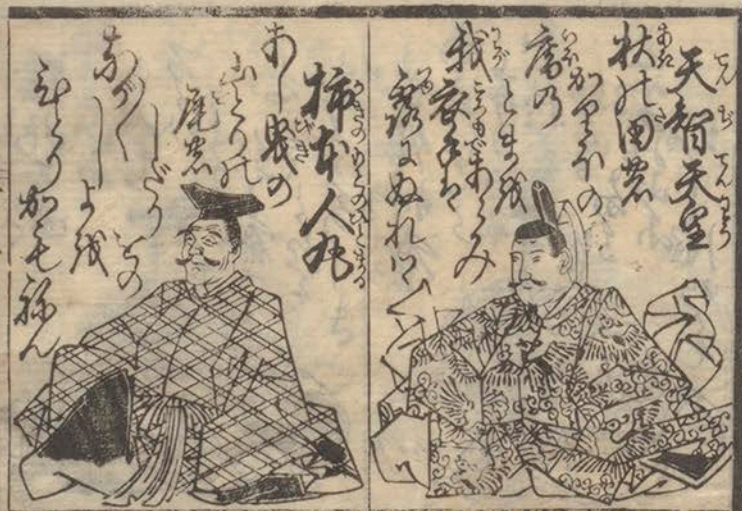 天智天皇
秋の田の
かりほの
庵の
とまを
我
衣手は
露にぬれつゝ
柿本人丸
あし曳の
山とりの
尾の
しだり
をの
なが〳〵し
よを
ひとりかもねん